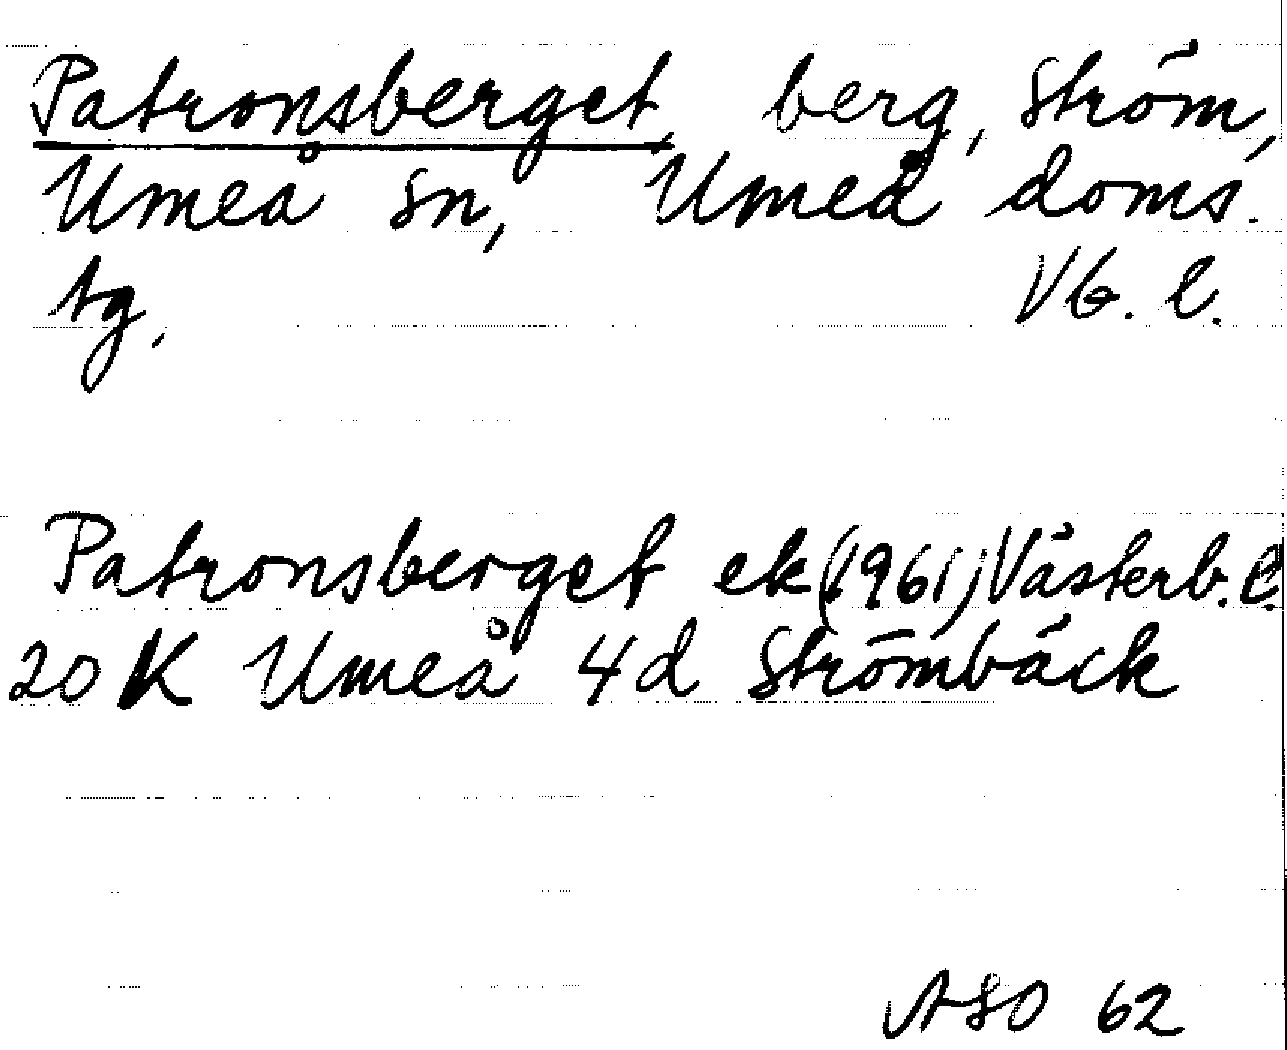 Patronsberget, berg, Ström,
Umeå sn, Umeå doms.
tg, Vb. l.
Patronsberget ek (1961) Västerb. l.
20 K Umeå 4d Strömbäck
ASO 62